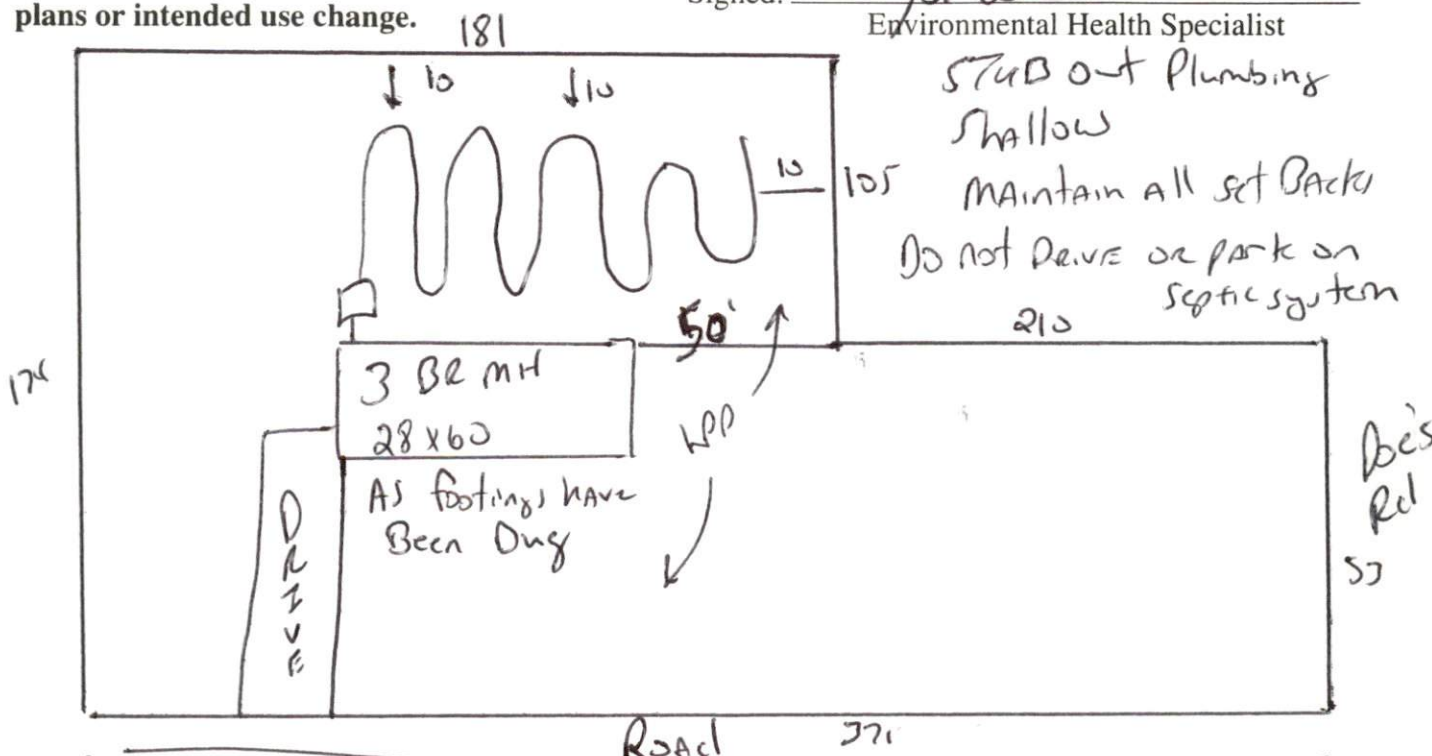 plans or intended use change.
Signed:
Environmental Health Specialist
181
STUB Out Plumbing
Shallow
MAintAin All set BAcks
Do not Drive or park on
septic system
10
10
10
105
50'
210
3 BR MH
28 x 60
As footings hAve
Been Dug
DRIVE
Doe's
Rd
53
Road